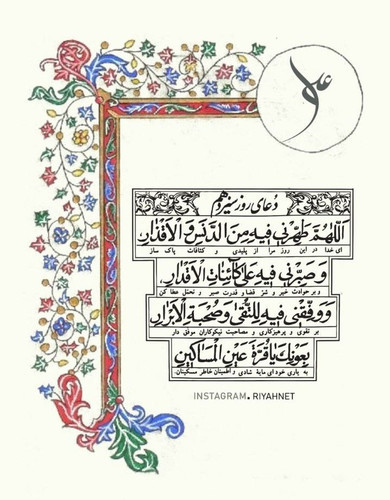 علی
دعای روز سیزدهم
اَللّهُمَّ طَهِّرْنی فیهِ مِنَ الدَّنَسِ وَالْاَقْذارِ
ای خدا در این روز مرا از پلیدی و کثافات پاک ساز
وَصَبِّرْنی فیهِ عَلی کائِناتِ الْاَقْدارِ
و بر حوادث خیر و شر قضا و قدرت صبر و تحمل عطا کن
وَوَفِّقْنی فیهِ لِلتُّقی وَصُحْبَةِ الْاَبْرارِ
بر تقوی و پرهیزکاری و مصاحبت نیکوکاران موفق دار
بِعَوْنِکَ یا قُرَّةَ عَیْنِ الْمَساکینِ
به یاری خود ای مایهٔ شادی و اطمینان خاطر مسکینان
INSTAGRAM. RIYAHNET